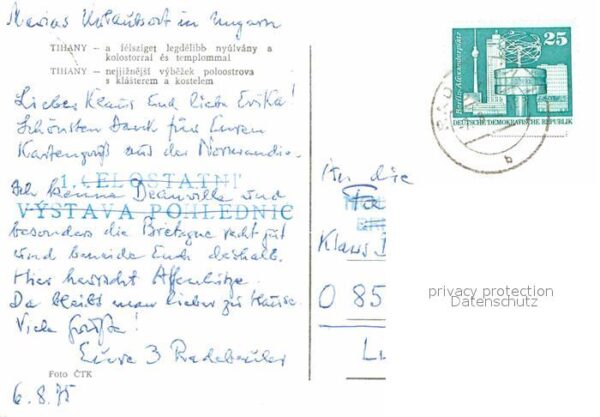 Marias Urlaubsort in Ungarn
TIHANY — a félsziget legdélibb nyúlvány a
kolostorral és templommal
TIHANY — nejjižnější výběžek poloostrova
s klášterem a kostelem
Lieber Klaus und liebe Erika!
Schönsten Dank für Euren
Kartengruß aus der Normandie.
1. CELOSTATNÍ
Ich kenne Deauville und
VÝSTAVA POHLEDNIC
besonders die Bretagne recht gut
und beneide Euch deshalb.
Hier herrscht Affenhitze.
Da bleibt man lieber zu Hause.
Viele Grüße!
Eure 3 Radebeuler
Foto ČTK
6.8.75
25
Berlin-Alexanderplatz
DEUTSCHE DEMOKRATISCHE REPUBLIK
b
An die
Fa
Klaus
O 85
privacy protection
Datenschutz